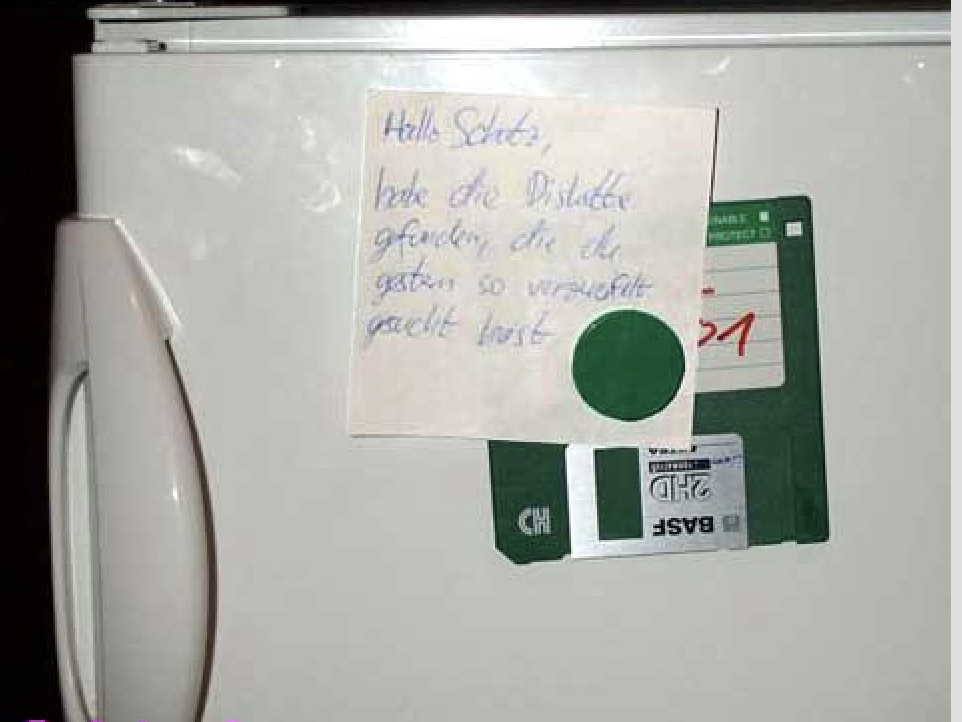 Hallo Schatz,
habe die Diskette
gfunden, die du
gestern so verzweifelt
gesucht hast
ENABLE
PROTECT
01
2HD
BASF
HD